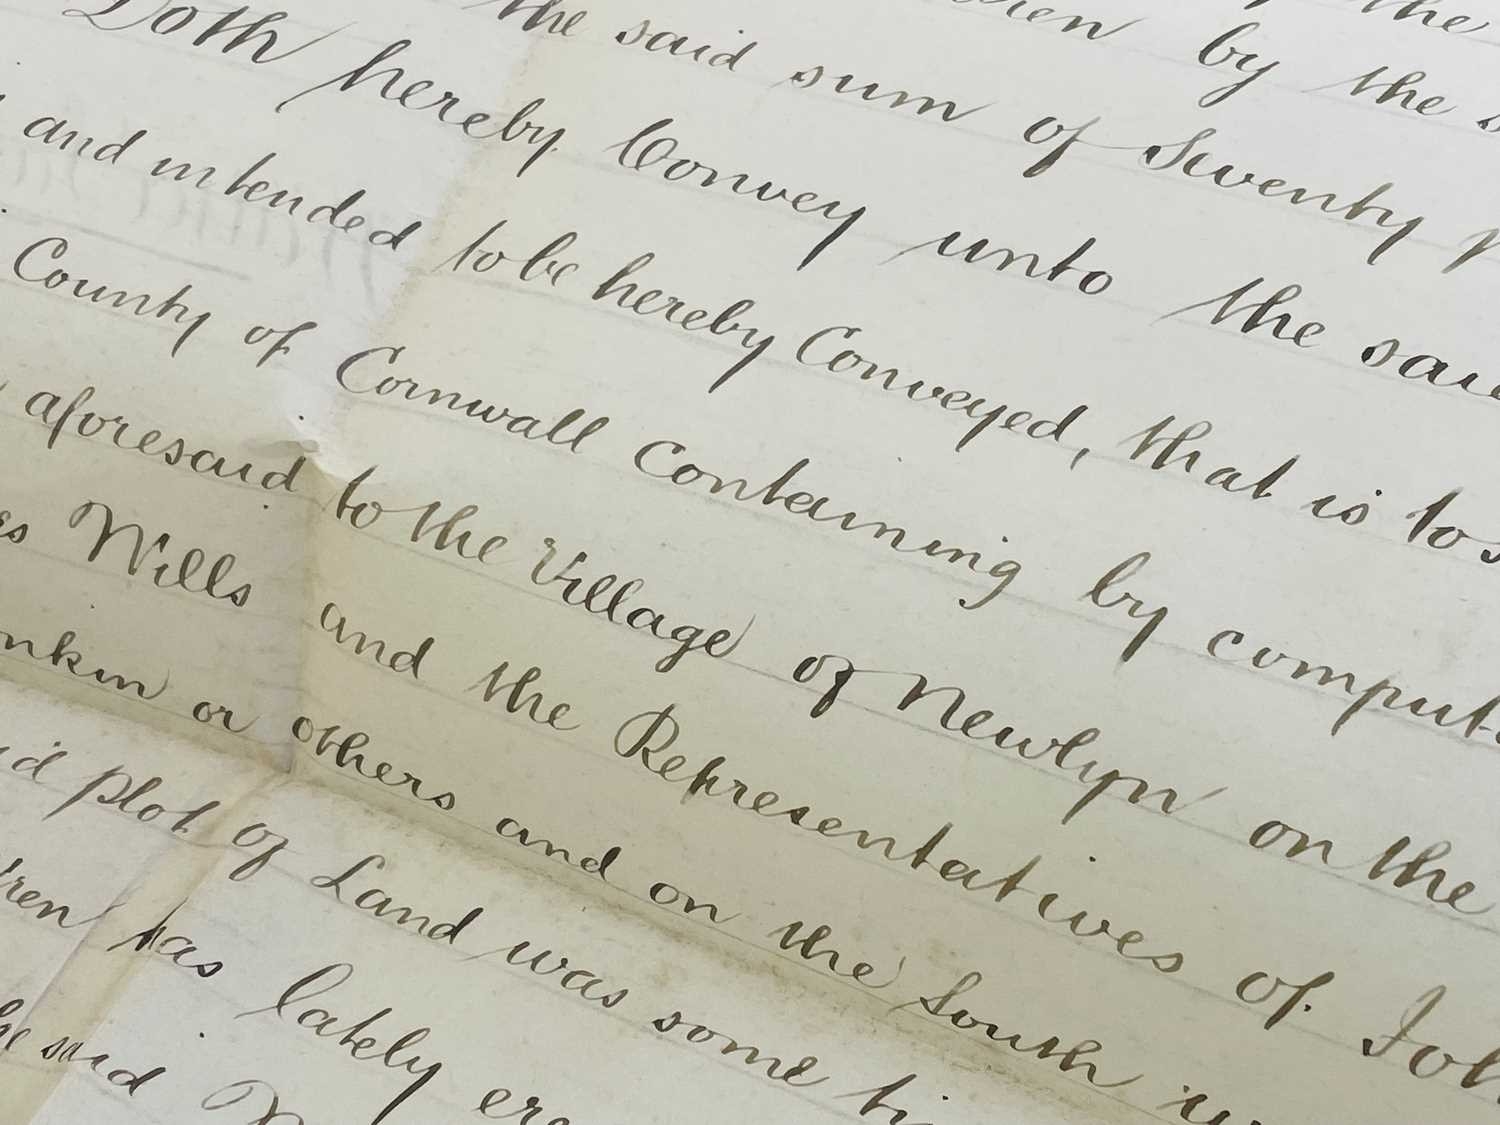 by the
the said sum of Seventy
Doth hereby Convey unto the said
and intended to be hereby Conveyed, that is to s
County of Cornwall Containing by comput
aforesaid to the Village of Newlyn on the
es Wills and the Representatives of Joh
nkin or others and on the South
id plot of Land was some ti
ren has lately ere
he said